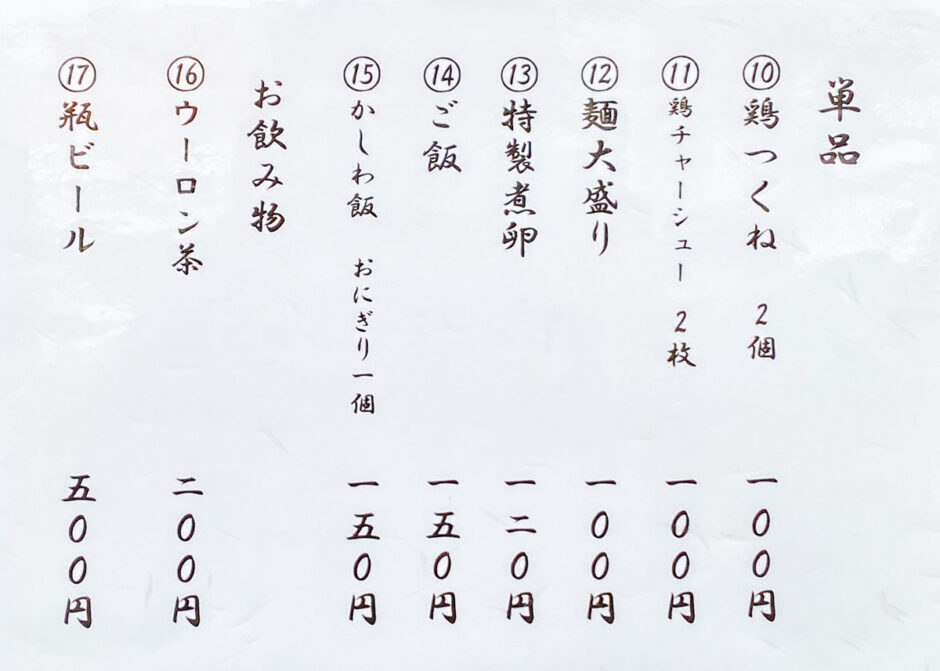 単品
⑩鶏つくね　2個　一00円
⑪鶏チャーシュー　2枚　一00円
⑫麺大盛り　一00円
⑬特製煮卵　一二0円
⑭ご飯　一五0円
⑮かしわ飯　おにぎり一個　一五0円
お飲み物
⑯ウーロン茶　二00円
⑰瓶ビール　五00円